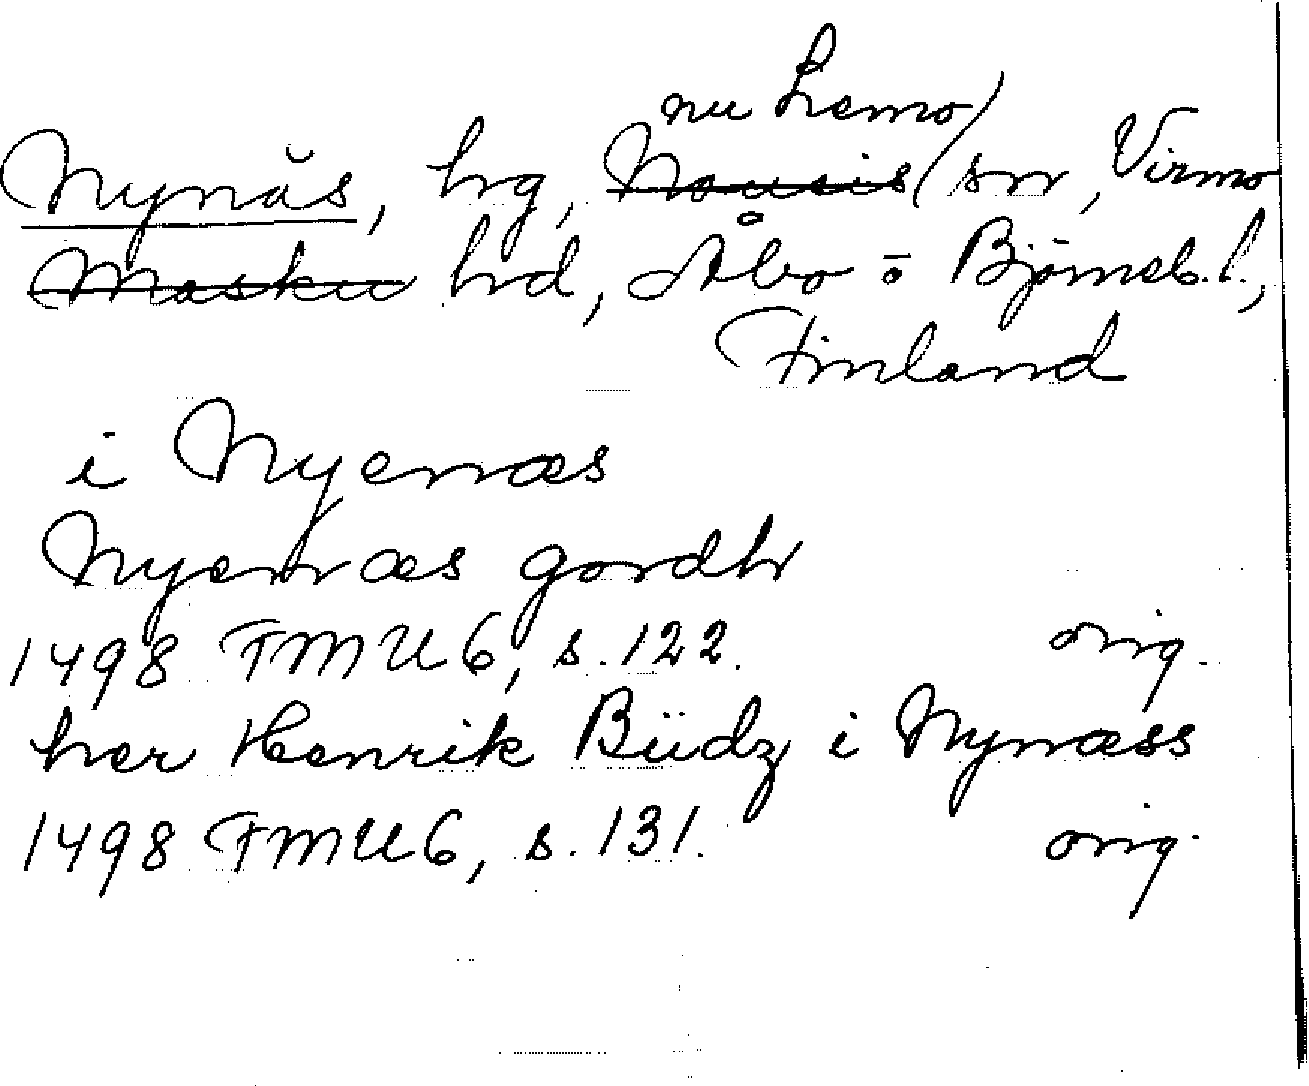 nu Lemo
Nynäs, hrg, Nousis sn, Virmo
Masku hd, Åbo o Björneb. l.,
Finland
i Nyenæs
Nyenæs gordh
1498 FMU 6, s. 122. orig.
her Henrik Büdz i Nynæss
1498 FMU 6, s. 131. orig.